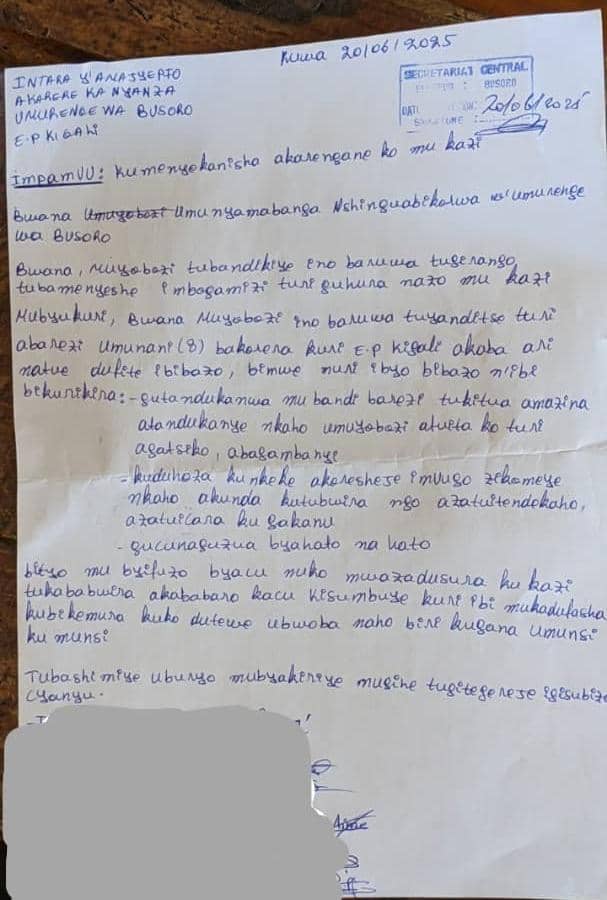 Kuwa 20/06/2025
INTARA Y'AMAJYEPFO
AKARERE KA NYANZA
UMURENGE WA BUSORO
E.P KIGALI
SECRETARIAT CENTRAL
BUSORO
DATE 20/06/2025
SIGNATURE :
IMPAMVU: Kumenyekanisha akarengane ko mu kazi
Bwana Umuyobozi Umunyamabanga Nshingwabikorwa w'umurenge
wa BUSORO
Bwana, Muyobozi tubandikiye ino baruwa tugerango,
tubamenyeshe imbogamizi turi guhura nazo mu kazi
Mubyukuri, Bwana Muyobozi ino baruwa tuyanditse turi
abarezi umunani (8) bakorera kuri E.P Kigali akaba ari
natwe dufite ibibazo, bimwe muri ibyo bibazo n'ibi
bikurikira: - gutandukanwa mu bandi barezi tukitwa amazina
atandukanye nkaho umuyobozi atwita ko turi
agatsiko, abagambanyi
- kuduhoza ku nkeke akoreshese imvugo zikomeye
nkaho akunda kutubwira ngo azatwitendekaho,
azatwicara ku gakanu
- gucunaguzwa byahato na hato
bityo mu byifuzo byacu nuko mwazadusura ku kazi
tukababwira akababaro kacu kisumbuye kuri ibi mukadufasha
kubikemura kuko dutewe ubwoba naho biri kugana umunsi
ku munsi
Tubashimiye uburyo mubyakiriye mugihe tugitegereje igisubizo
cyanyu.